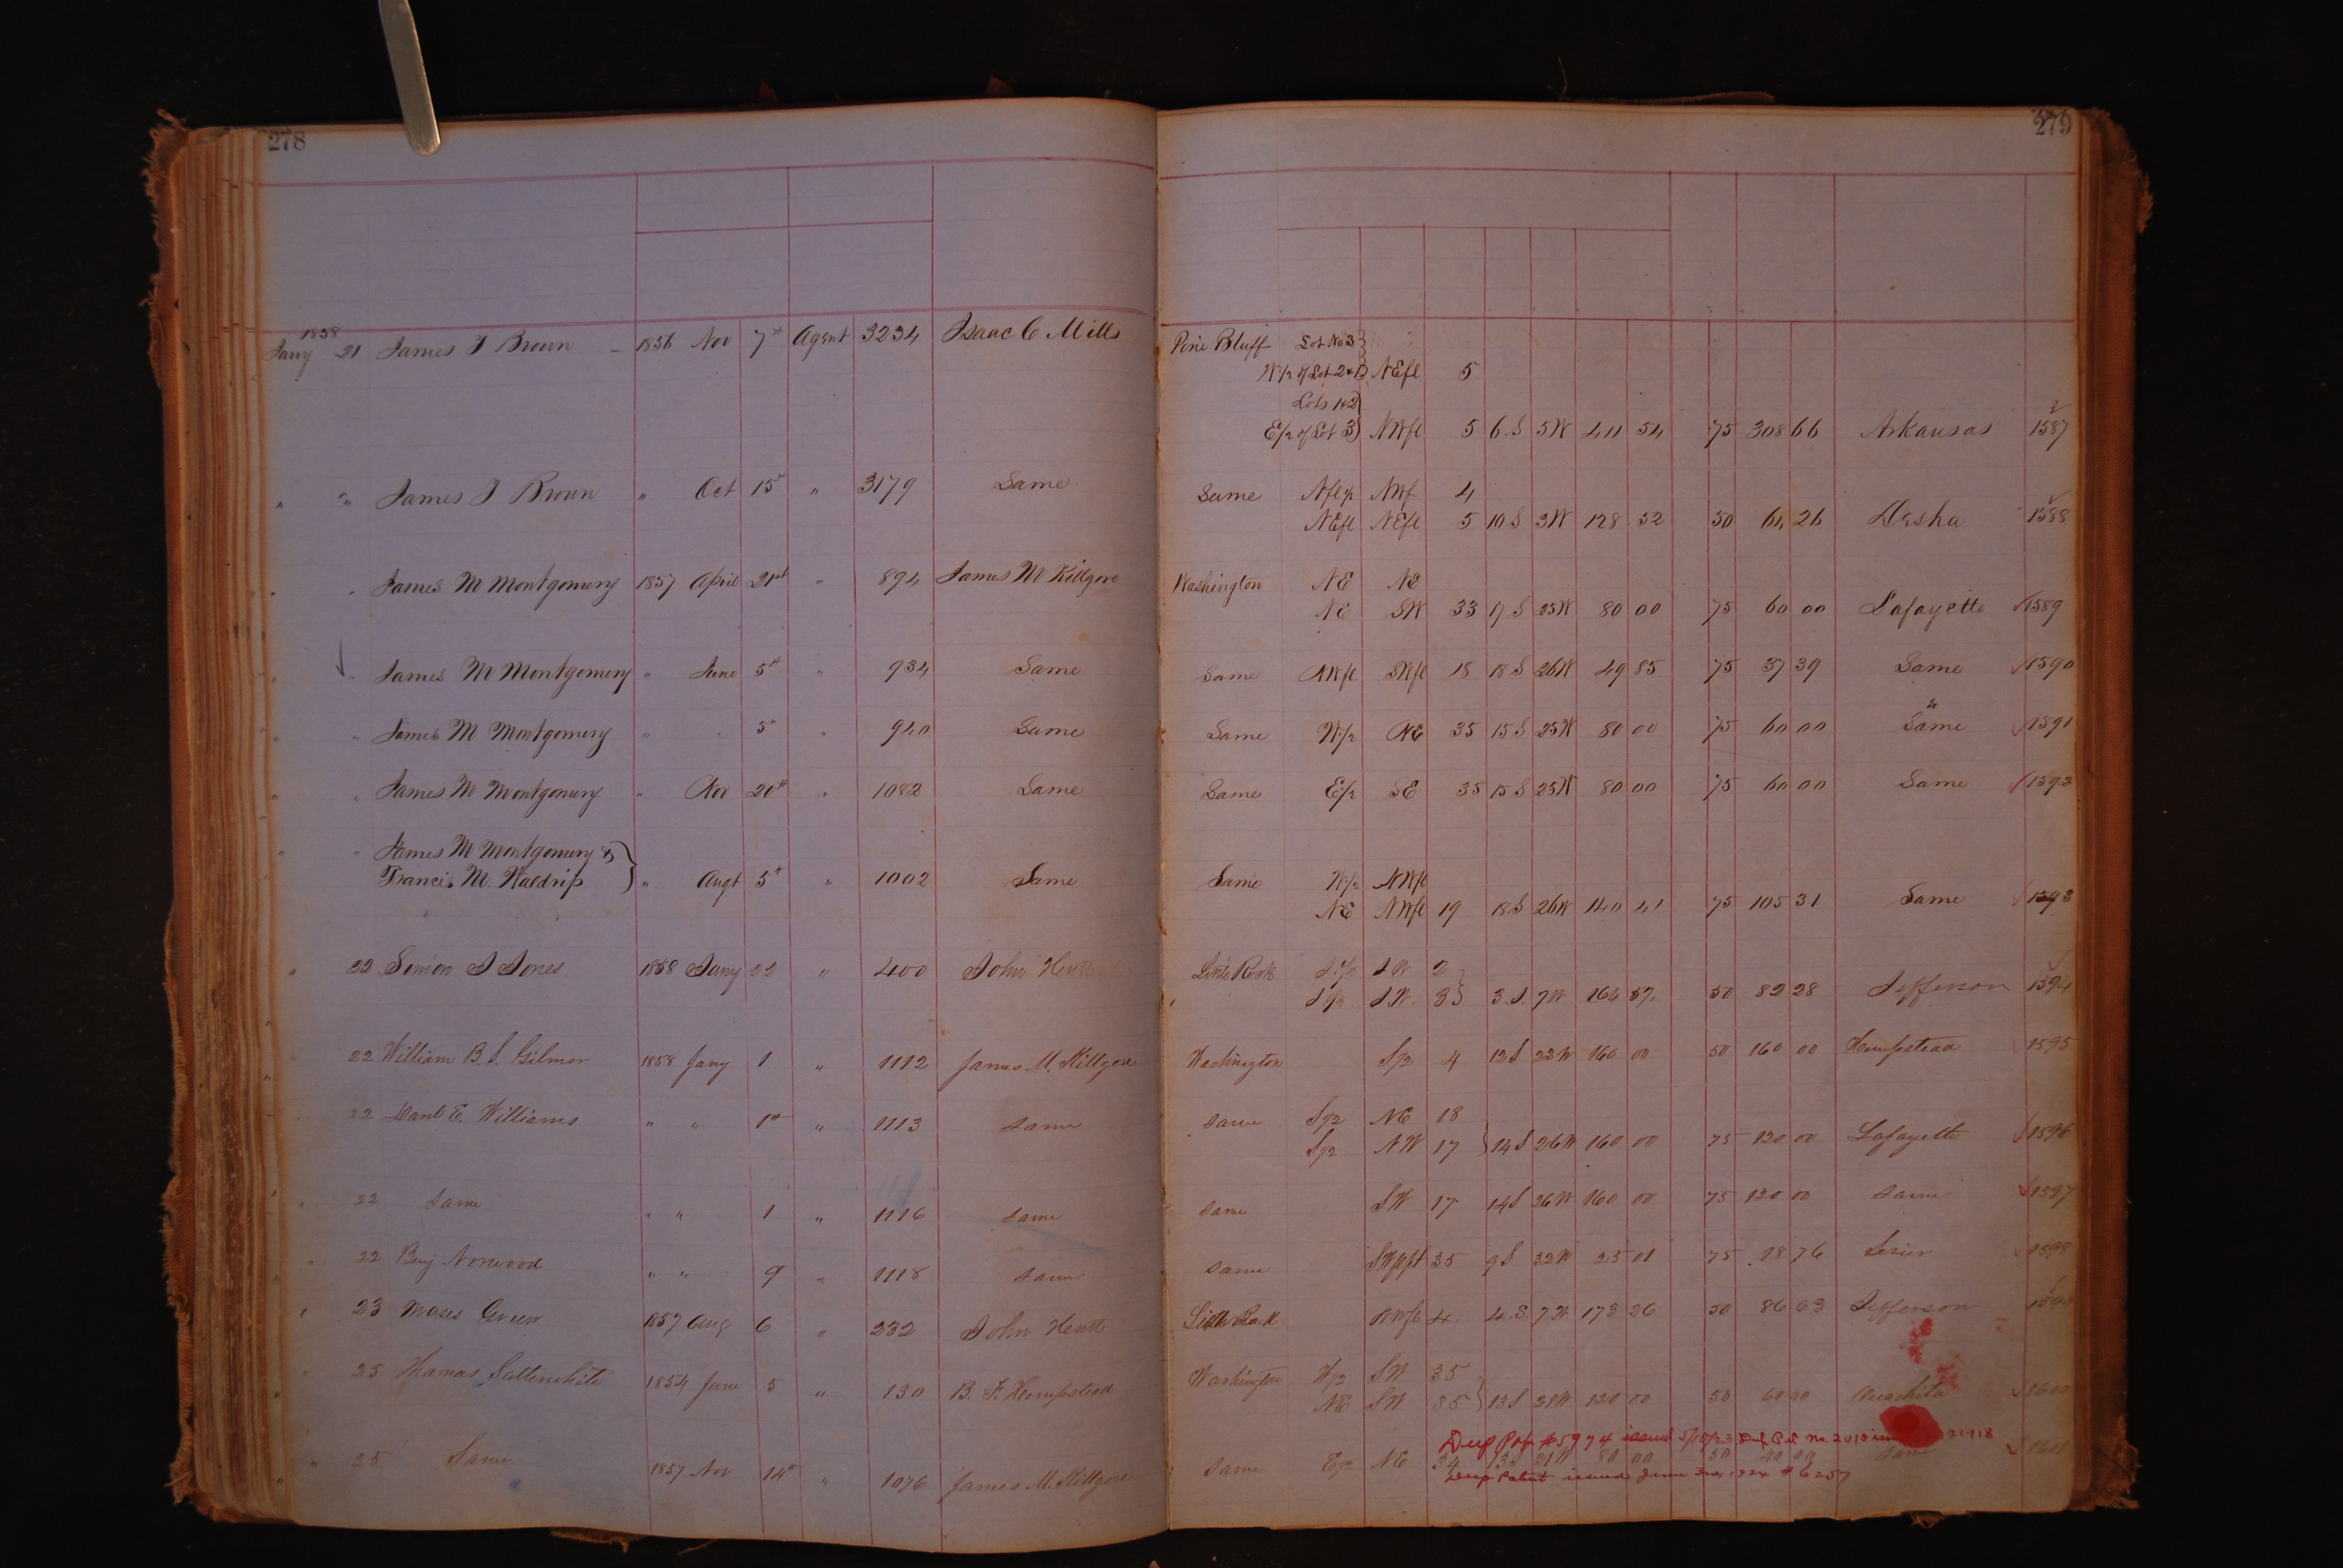 278
279
1858
Jany 21 James T Brown 1856 Nov 7th Agent 3234 Isaac C Mills Pine Bluff Lot No 3
W/2 of Lot 2 & NEfl 5
Lots 1&2
E/2 of Lot 3 NWfl 5 6S 5W 411 54 75 308 66 Arkansas 1587
" " James T Brown " Oct 15th " 3179 Same Same Nfl/2 NWf 4
NEfl NEfl 5 10S 3W 128 52 50 64 26 Desha 1588
" " James M Montgomery 1857 April 21st " 894 James M Killgore Washington NE NE
NE SW 33 17S 25W 80 00 75 60 00 Lafayette 1589
" " James M Montgomery " June 5th " 934 Same Same NWfl SWfl 18 18S 26W 49 85 75 37 39 Same 1590
" " James M Montgomery " " 5" " 940 Same Same W/2 NE 35 15S 25W 80 00 75 60 00 Same 1591
" " James M Montgomery " Nov 20th " 1082 Same Same E/2 SE 35 15S 25W 80 00 75 60 00 Same 1592
" " James M Montgomery &
Francis M. Waldrip " Augt 5th " 1002 Same Same W/2 NWfl
NE NWfl 19 18S 26W 140 41 75 105 31 Same 1593
" 22 Simon J Jones 1858 Jany 22 " 400 John Hewitt Little Rock S/2 SW 2
S/2 S.W. 3 3.S. 7W 164 57 50 82 28 Jefferson 1594
" 22 William B. S. Gilmer 1858 Jany 1 " 1112 James M. Killgore Washington S/2 4 12S 22W 160 00 50 160 00 Hempstead 1595
" 22 Danl E. Williams " " 1st " 1113 same same S/2 NE 18
S/2 NW 17 14S 26W 160 00 75 120 00 Lafayette 1596
" 22 Same " " 1 " 1116 same same SW 17 14S 26W 160 00 75 120 00 same 1597
" 22 Benj Norwood " " 9 " 1118 same same 35 9S 32W 25 01 75 18 76 Sevier 1598
" 23 Moses Green 1857 Aug 6 " 232 John Hewitt Little Rock NWfl 4 4.S. 7W 173 26 50 86 63 Jefferson 1599
" 25 Thomas Sattenwhite 1854 June 5 " 130 B. F. Hempstead Washington W/2 SW 35
NE SW 35 13S 21W 120 00 50 60 00 Ouachita 1600
Dup Pat #5974 issued 5/18/23 Dup Pat No. 2013 21918
" 25 Same 1857 Nov 14th " 1076 James M. Killgore same E/2 NE 34 13S 21W 80 00 50 40 00 same 1601
Dup Patent issued June 3rd 1924 #6257